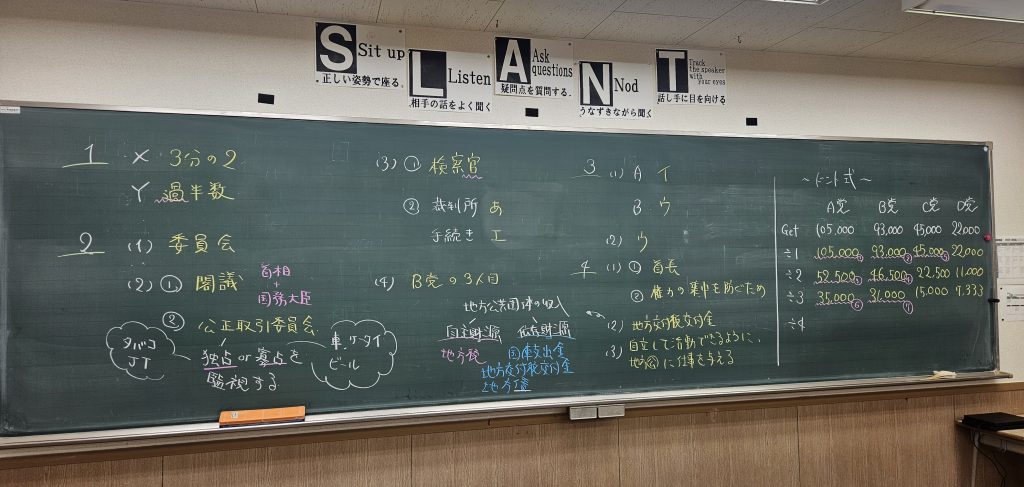 S Sit up
正しい姿勢で座る.
L Listen
相手の話をよく聞く
A Ask questions
疑問点を質問する.
N Nod
うなずきながら聞く
T Track the speaker with your eyes
話し手に目を向ける
1 X 3分の2
Y 過半数
2 (1) 委員会
(2) ① 閣議 首相+国務大臣
② 公正取引委員会
独占or寡占を
監視する
タバコ
JT
車、ケータイ
ビール
(3) ① 検察官
② 裁判所 あ
手続き エ
(4) B党の3人目
地方公共団体の収入
自主財源 依存財源
地方税 国庫支出金
地方交付税交付金
地方債
3 (1) A イ
B ウ
(2) ウ
4 (1) ① 首長
② 権力の集中を防ぐため
(2) 地方交付税交付金
(3) 自立して活動できるように、
に仕事を与える
〜ドント式〜
A党 B党 C党 D党
Get 105,000 93,000 45,000 22,000
÷1 105,000① 93,000② 45,000⑤ 22,000
÷2 52,500③ 46,500④ 22,500 11,000
÷3 35,000⑥ 31,000⑦ 15,000 7,333
÷4